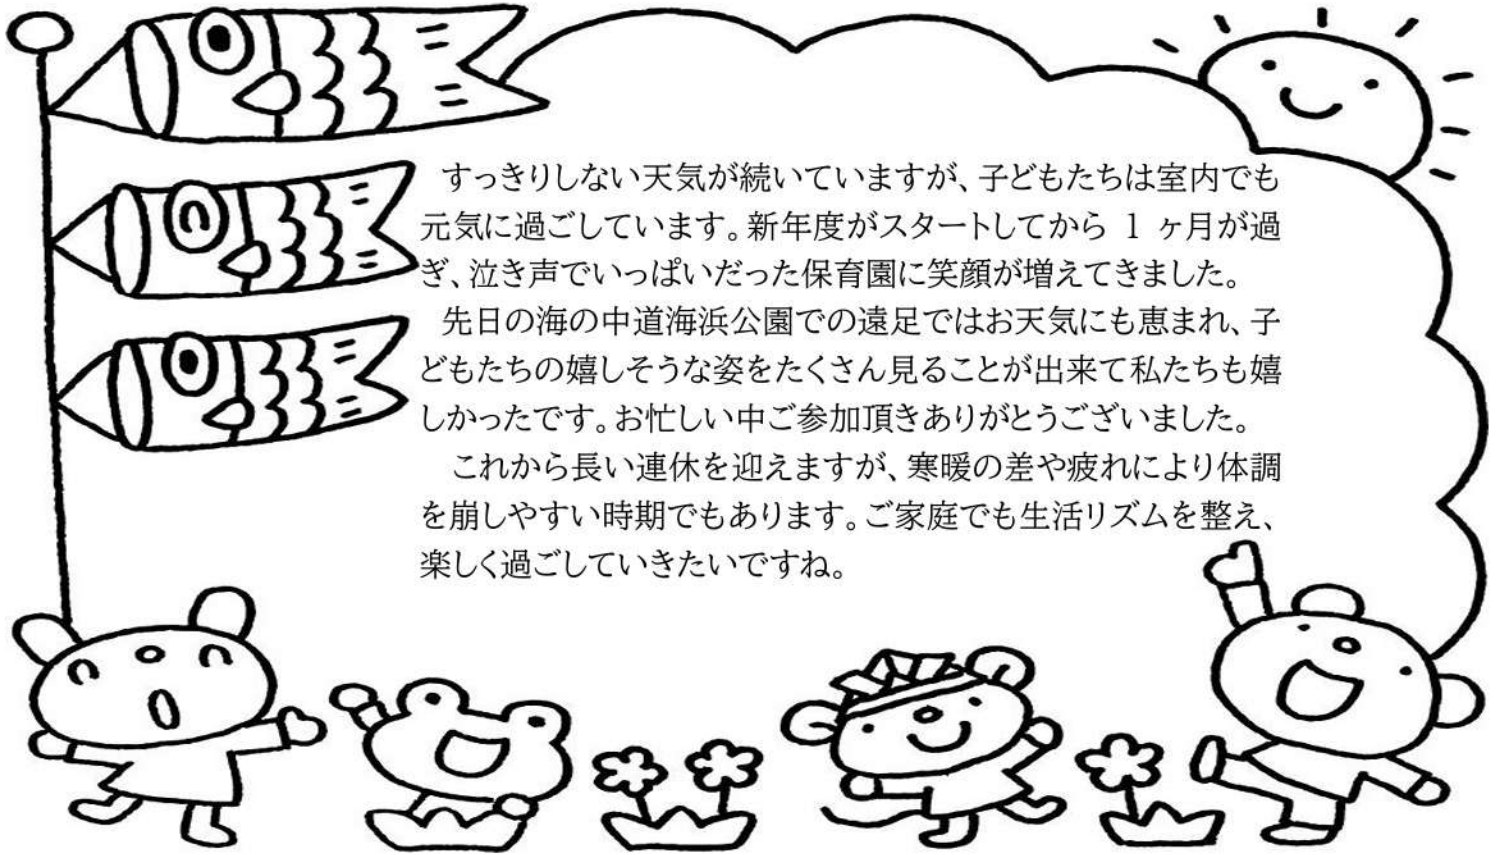 すっきりしない天気が続いていますが、子どもたちは室内でも
元気に過ごしています。新年度がスタートしてから 1 ヶ月が過
ぎ、泣き声でいっぱいだった保育園に笑顔が増えてきました。
先日の海の中道海浜公園での遠足ではお天気にも恵まれ、子
どもたちの嬉しそうな姿をたくさん見ることが出来て私たちも嬉
しかったです。お忙しい中ご参加頂きありがとうございました。
これから長い連休を迎えますが、寒暖の差や疲れにより体調
を崩しやすい時期でもあります。ご家庭でも生活リズムを整え、
楽しく過ごしていきたいですね。